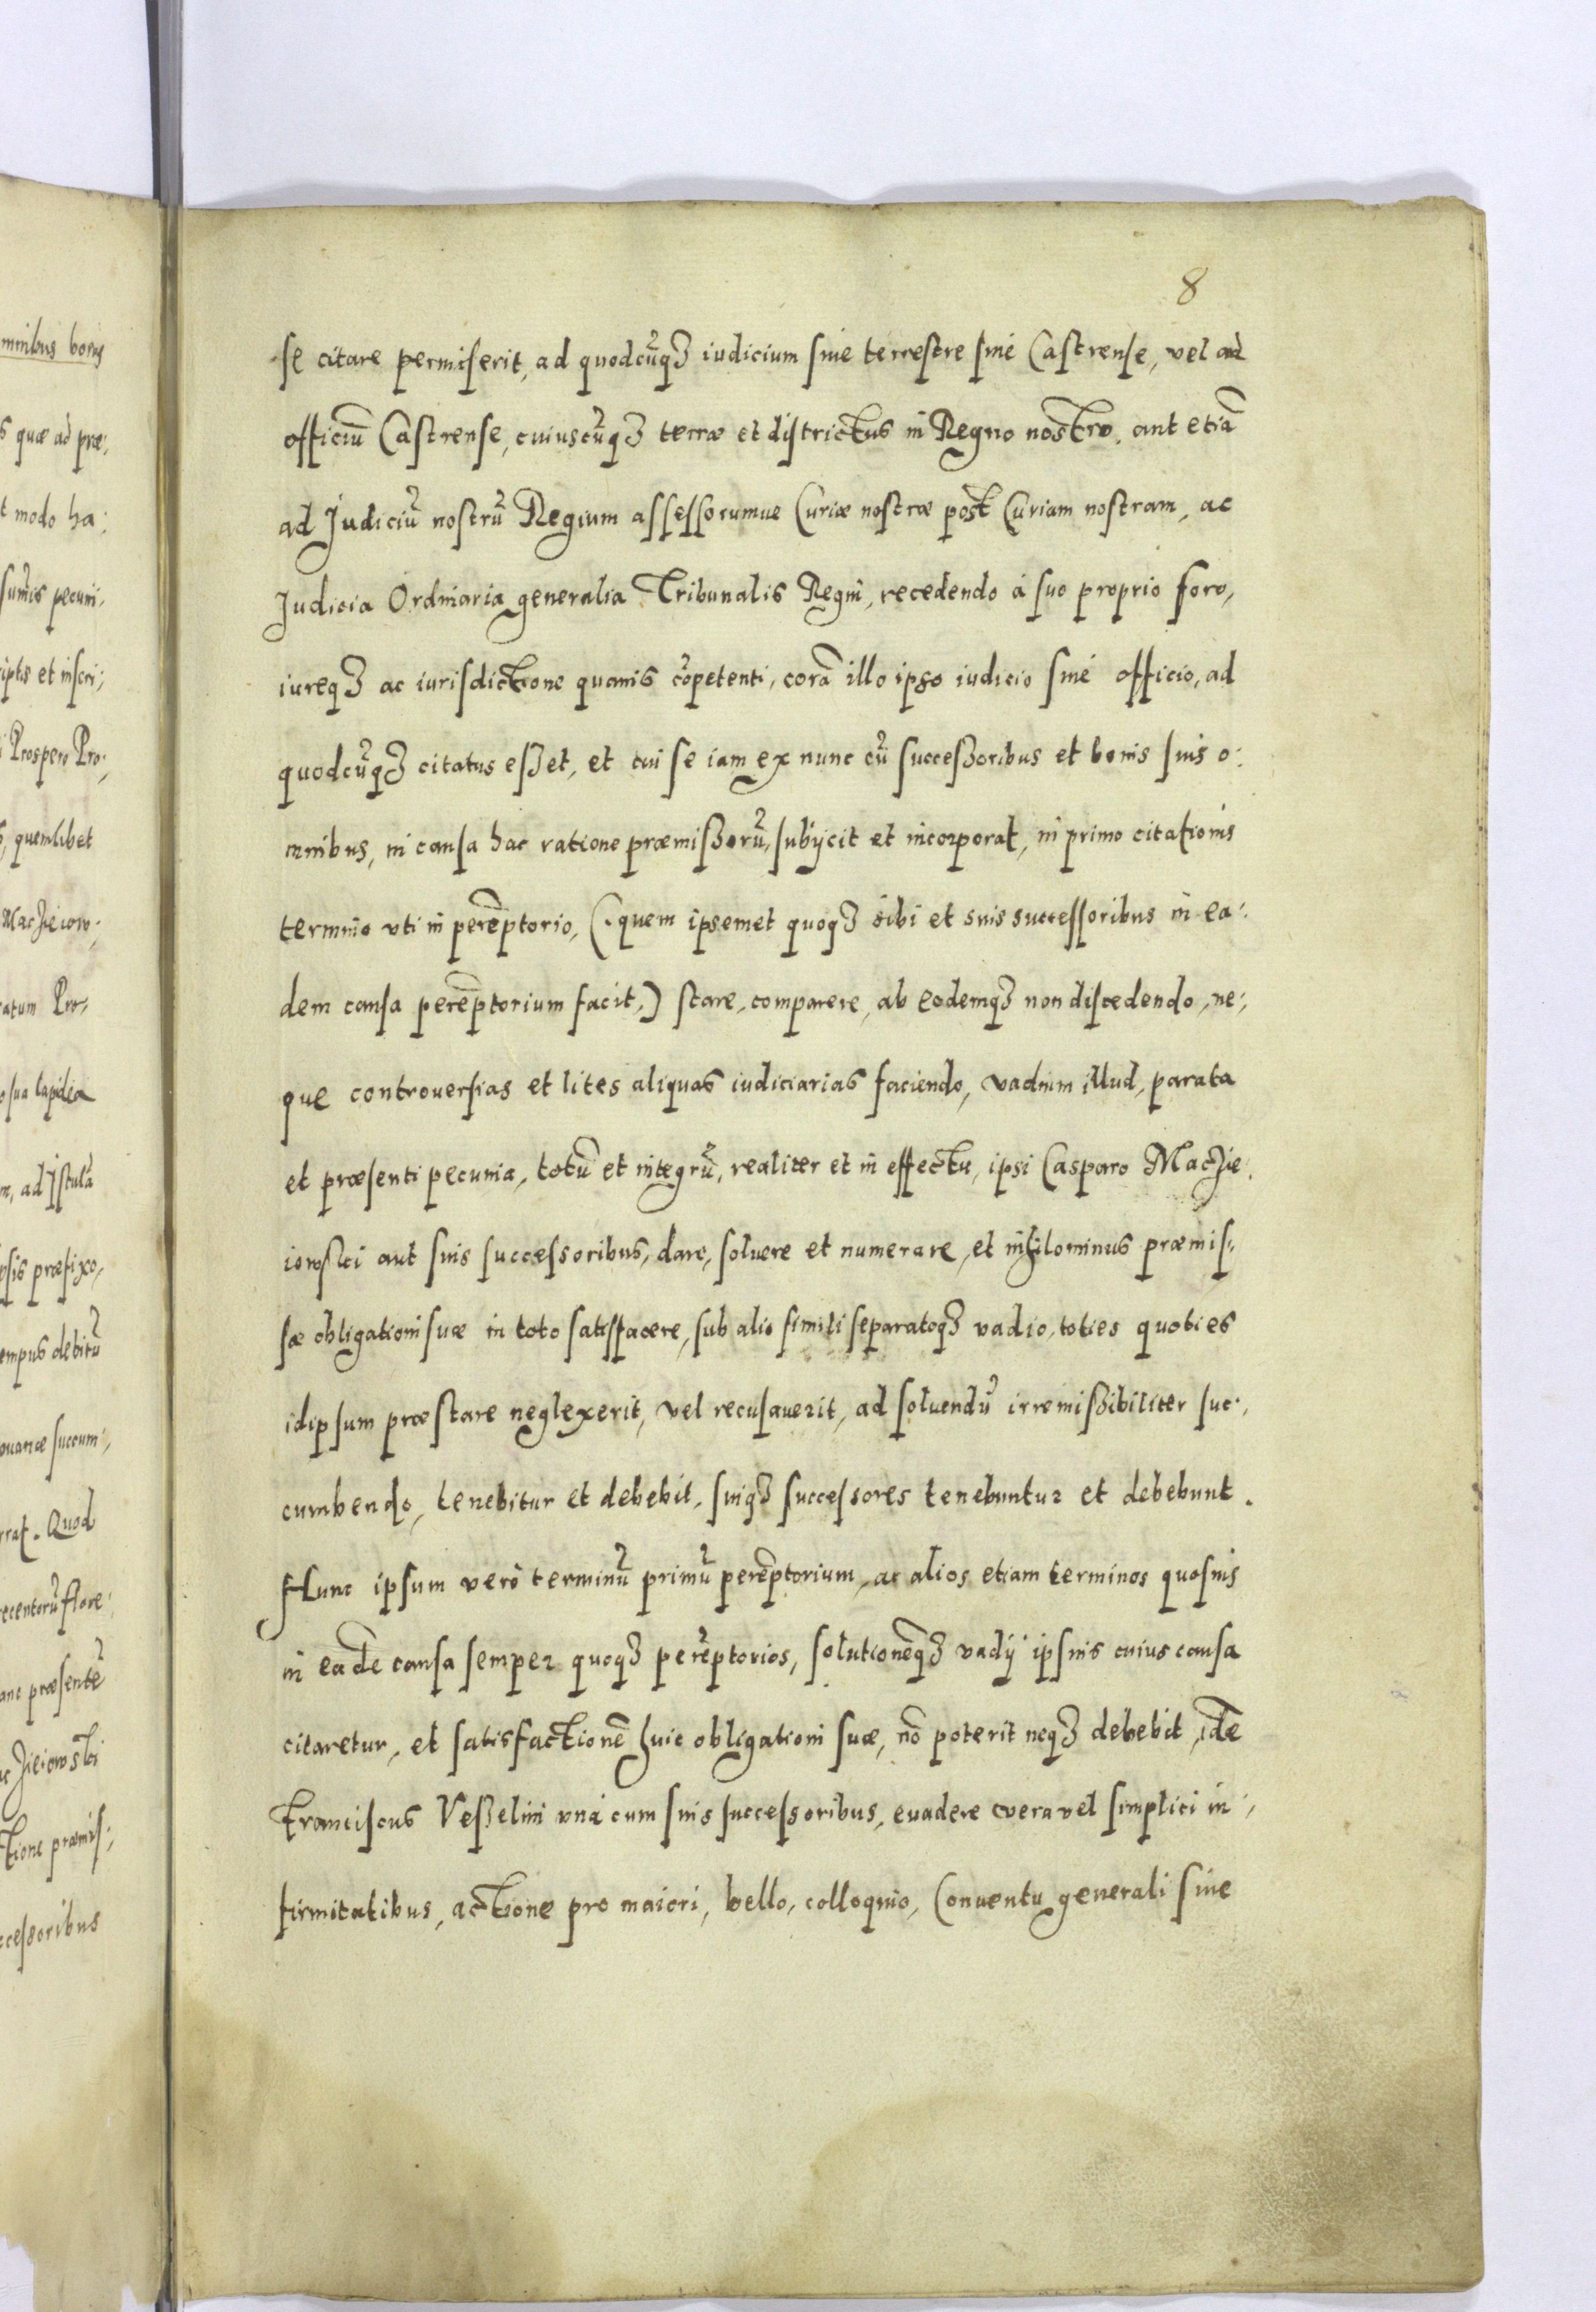 8
se citare permiserit, ad quodcũqꝫ iudicium siue terrestre siue Castrense, vel ad
officiũ Castrense, cuiuscũqꝫ terræ et districtus in Regno nostro, aut etiã
ad Judiciũ nostrũ Regium assessorumue Curiæ nostræ post Curiam nostram, ac
Judicia Ordinaria generalia Tribunalis Regni, recedendo á suo proprio foro,
iureqꝫ ac iurisdictione quamis cõpetenti, corã illo ipso iudicio siue officio, ad
quodcũqꝫ citatus eßet, et cui se iam ex nunc cũ succeßoribus et bonis suis o:
mnibus, in causa hac ratione præmißorũ, subijcit et incorporat, in primo citationis
termino vti in perẽptorio, (quem ipsemet quoqꝫ sibi et suis successoribus in ea:
dem causa perẽptorium facit,) stare, comparere, ab eodemqꝫ non discedendo, ne:
que controuersias et lites aliquas iudiciarias faciendo, vadium illud, parata
et præsenti pecunia, totũ et integrũ, realiter et in effectu, ipsi Casparo Maczie:
iowski aut suis successoribus, dare, soluere et numerare, et nihilominus præmis:
sæ obligationi suæ in toto satisfacere, sub alio simili separatoqꝫ vadio, toties quoties
idipsum præstare neglexerit, vel recusauerit, ad soluendũ irremißibiliter suc:
cumbendo, tenebitur et debebit, suiqꝫ successores tenebuntur et debebunt.
Hunc ipsum verò terminũ primũ perẽptorium, ac alios etiam terminos quosuis
in eadẽ causa semper quoqꝫ perẽptorios, solutionẽqꝫ vadij ipsius cuius causa
citaretur, et satisfactionẽ huic obligationi suæ, nõ poterit neqꝫ debebit, idẽ
Franciscus Veßelini vnà cum suis successoribus, euadere vera vel simplici in:
firmitatibus, actione pro maiori, bello, colloquio, Conuentu generali siue